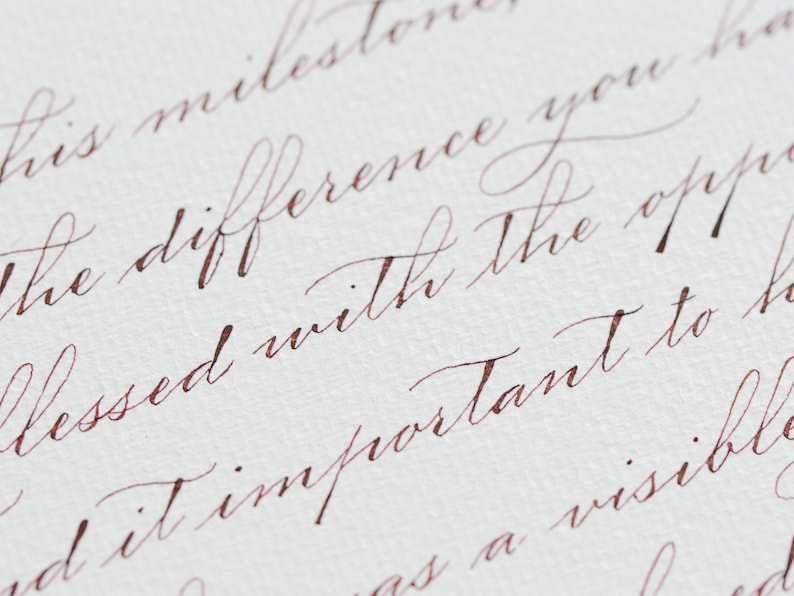 this milestone,
the difference you ha
blessed with the oppo
nd it important to h
as a visible